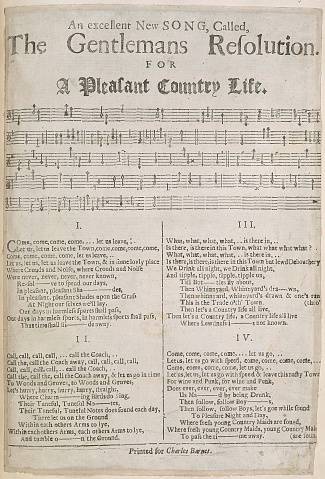 An excellent New SONG, Called,
The Gentlemans Resolution.
FOR
A Pleasant Country Life.
I.
COme, come, come, come,... let us leave,
Let us, let us leave the Town, come, come, come, come,
Come, come, come, come, let us leave,
Let us, let us, let us leave the Town, & in some lovely place
Where Crouds and Noise, where Crouds and Noise
Were never, never, never, never known,
Resolve to spend our days,
In pleasant, pleasant Shades
In pleasant, pleasant Shades upon the Grass
At Night our selves we'll lay,
Our days in harmless sports shall pass,
Our days in harmless sports, in harmless sports shall pass,
Thus time shall de away.
II.
Call, call, call, call, ... call the Coach,
Call the, call the Coach away, call, call, call, call,
Call, call, call, call, .. call the Coach,
Call the, call the, call the Coach away, & let us go in time
To Woods and Groves, to Woods and Groves,
Let's hurry, hurry, hurry, hurry, straight,
Where Charm ing Birds do sing,
Their Tuneful, Tuneful No tes,
Their Tuneful, Tuneful Notes do sound each day,
There let us on the Ground
Within each others Arms to lye,
Within each others, each others Arms to lye,
And tumble on the Ground.
III.
What, what, what, what, .. is there in,
Is there, is there in this Town, what what what what?
What, what, what, what, .. is there in,
Is there, is there, is there in this Town but lewd Debauchery
We Drink all night, we Drink all night,
And tipple, tipple, tipple, tipple on,
Till Bottles fly about,
Then Whims and, Whims and's drawn,
Then Whims and, Whims and's drawn & one's run
This is the Trade of th' Town.
Then let's a Country life all live,
Then let's a Country life, a Country life all live
Where Lewdness not known.
IV.
Come, come, come, come, .. let us go,
Let us, let us go with speed, come, come, come, come,
Come, come, come, come, let us go,
Let us, let us, let us go with speed & leave this nasty Town
For wine and Punk, for wine and Punk,
Does ever, ever, ever, ever make
Us Mad by being Drunk,
Then follow, follow Boys,
Then follow, follow Boys, let's go e while found
To Pleasure Night and Day,
Where fresh young Country Maids are found,
Where fresh young Country Maids, young Country Maids
To pass the time away.
Printed for Charles Barnet.